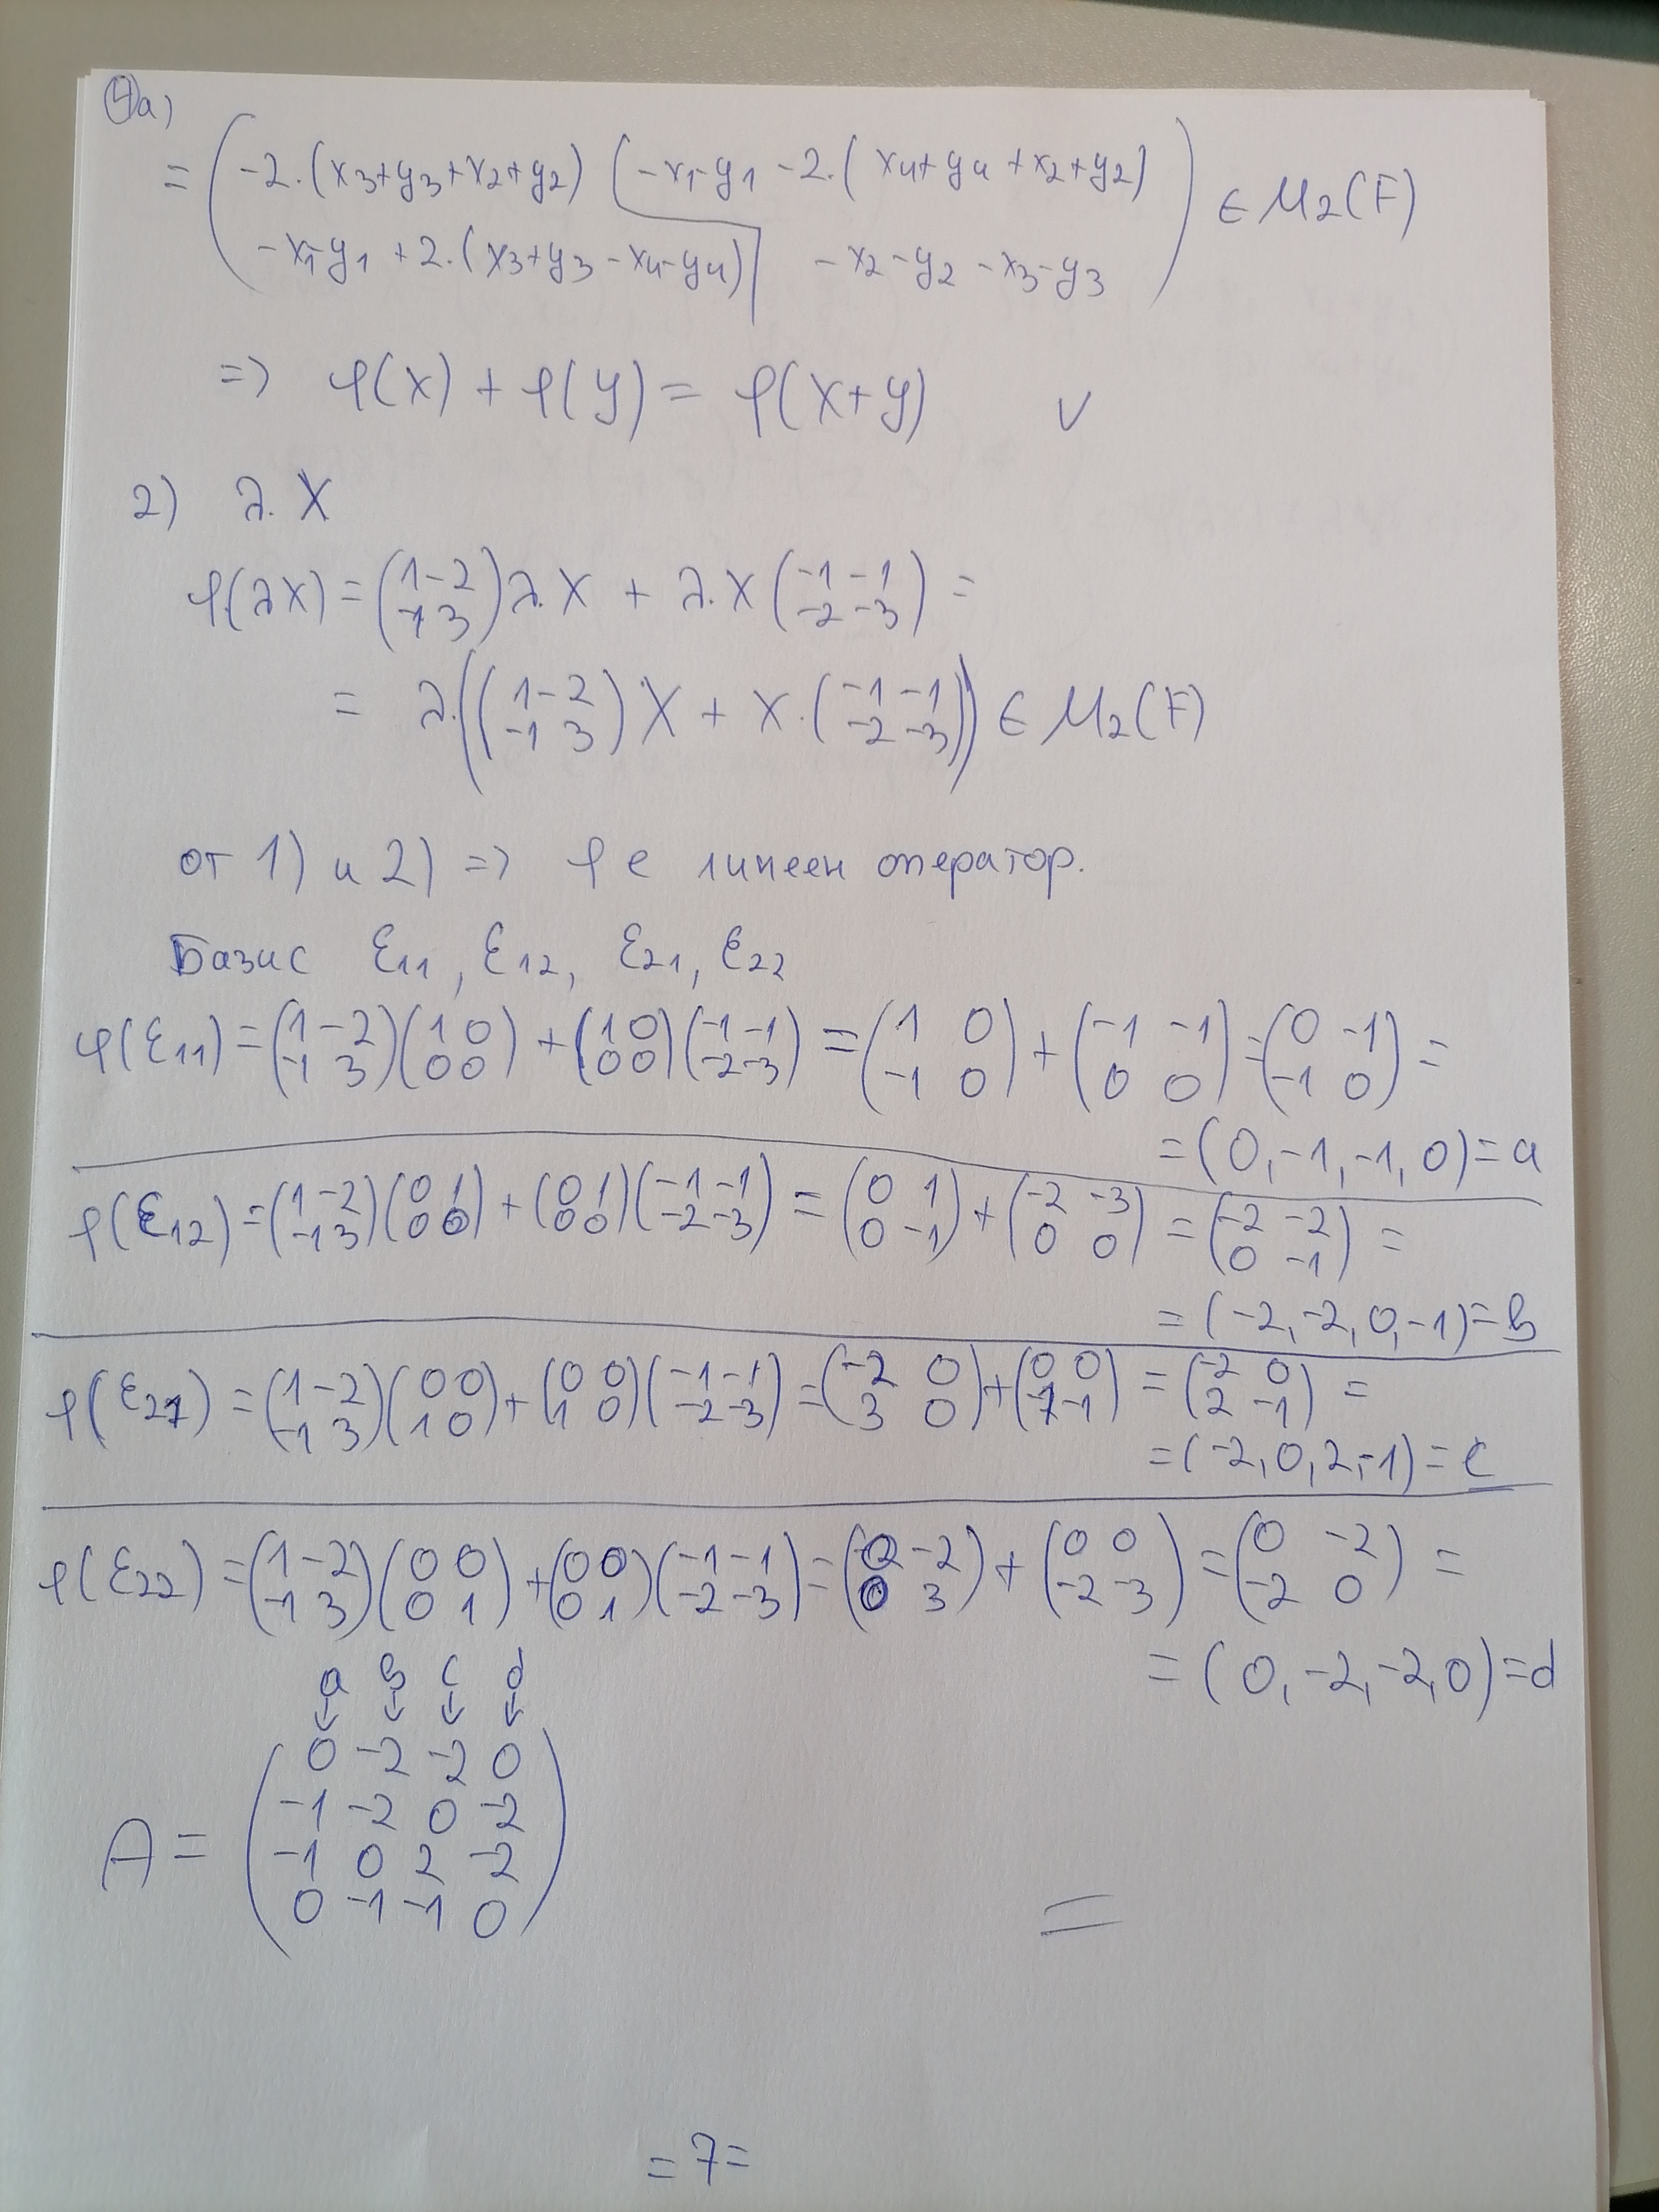 4a)
= ( -2.(x3+y3+x2+y2) -x1-y1 -2.(x4+y4+x2+y2) ) ∈ M2(F)
( -x1-y1 +2.(x3+y3-x4-y4) -x2-y2-x3-y3 )
=> φ(x) + φ(y) = φ(x+y) v
2) λ.X
φ(λX) = (1 -2; -1 3) λ.X + λ.X (-1 -1; -2 -3) =
= λ.((1 -2; -1 3) X + X.(-1 -1; -2 -3)) ∈ M2(F)
от 1) и 2) => φ е линеен оператор.
Базис E11, E12, E21, E22
φ(E11) = (1 -2; -1 3)(1 0; 0 0) + (1 0; 0 0)(-1 -1; -2 -3) = (1 0; -1 0) + (-1 -1; 0 0) = (0 -1; -1 0) =
= (0, -1, -1, 0) = a
φ(E12) = (1 -2; -1 3)(0 1; 0 0) + (0 1; 0 0)(-1 -1; -2 -3) = (0 1; 0 -1) + (-2 -3; 0 0) = (-2 -2; 0 -1) =
= (-2, -2, 0, -1) = в
φ(E21) = (1 -2; -1 3)(0 0; 1 0) + (0 0; 1 0)(-1 -1; -2 -3) = (-2 0; 3 0) + (0 0; -1 -1) = (-2 0; 2 -1) =
= (-2, 0, 2, -1) = c
φ(E22) = (1 -2; -1 3)(0 0; 0 1) + (0 0; 0 1)(-1 -1; -2 -3) = (0 -2; 0 3) + (0 0; -2 -3) = (0 -2; -2 0) =
= (0, -2, -2, 0) = d
a в c d
↓ ↓ ↓ ↓
A = (0 -2 -2 0
-1 -2 0 -2
-1 0 2 -2
0 -1 -1 0)
=
= 7 =